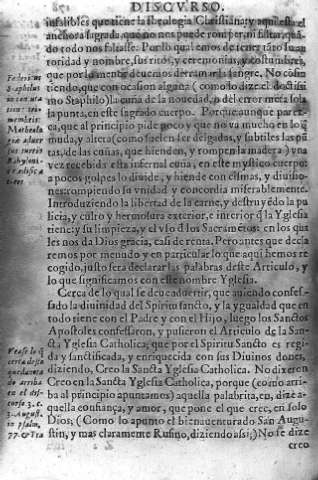 DISCVRSO.
infalibles que tiene la theologia Christiana: y aqui esta el
anchora sagrada, que no nos puede romper, ni faltar, quã
do todo nos faltasse. Por lo qual emos de tener tãto su au
toridad y nombre, sus ritos, y ceremonias, y costumbres,
que por la menor deuemos derramar la sangre. No cõsin
tiendo, que con ocasion alguna (como lo dize el doctissi
mo Staphilo) la cuña de la nouedad, o del error meta sola
la punta, en este sagrado cuerpo. Porque aunque parez-
ca, que al principio pide poco y que no va mucho en lo q̃
muda, y altera (como suelen ser delgadas, y subtiles las pũ
tas, de las cuñas, que hienden, y rompen la madera) vna
vez recebida esta infernal cuña, en este mystico cuerpo:
a pocos golpes lo diuide, y hiende con cismas, y diuisio-
nes: rompiendo su vnidad y concordia miserablemente.
Introduziendo la libertad de la carne, y destruyẽdo la po
licia, y culto y hermosura exterior, e interior q̃ la Yglesia
tiene: y su limpieza, y el vso d̃ los Sacramẽtos: en los qua
les nos da Dios gracia, casi de renta. Pero antes que decla
remos por menudo y en particular lo que aqui hemos re
cogido, justo sera declarar las palabras deste Articulo, y
lo que significamos con este nombre Yglesia.
Cerca de lo qual se deue aduertir, que auiendo confes-
sado la diuinidad del Spiritu sancto, y la ygualdad que en
todo tiene con el Padre y con el Hijo, luego los Sanctos
Apostoles confessaron, y pusieron el Articulo de la San-
cta Yglesia Catholica: que por el Spiritu Sancto es regi-
da y sanctificada, y enriquecida con sus Diuinos dones,
diziendo, Creo la Sancta Yglesia Catholica. No dixeren
Creo en la Sancta Yglesia Catholica, porque (como arri-
ba al principio apuntamos) aquella palabrita, en, dize a-
quella confiança, y amor, que pone el que cree, en solo
Dios; (Como lo apunto el bienauenturado San Augu-
stin, y mas claramente Rufino, diziendo assi;) No se dize
creo
Staphylus
Vease lo q̃
cerca desto
queda nota
do arriba
en el dis-
curso 3. c.
3. August.
in psalm.
77. & Tra